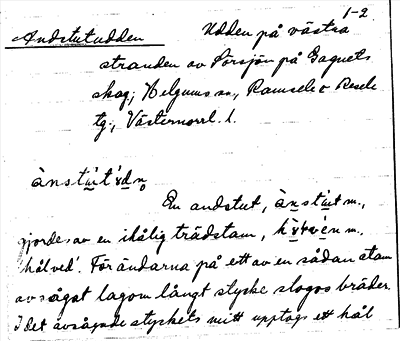 1-2
Andstutudden Udden på västra
stranden av Körsjön på Gagnets
skog; Helgums sn, Ramsele o Resele
tg., Västernorrl. l.
En andstut, m.,
gjordes av en ihålig trädstam, m.
'hålved'. För ändarna på ett av en sådan stam
avsågat lagom långt stycke slogos bräder.
I det avsågade styckets mitt upptogs ett hål